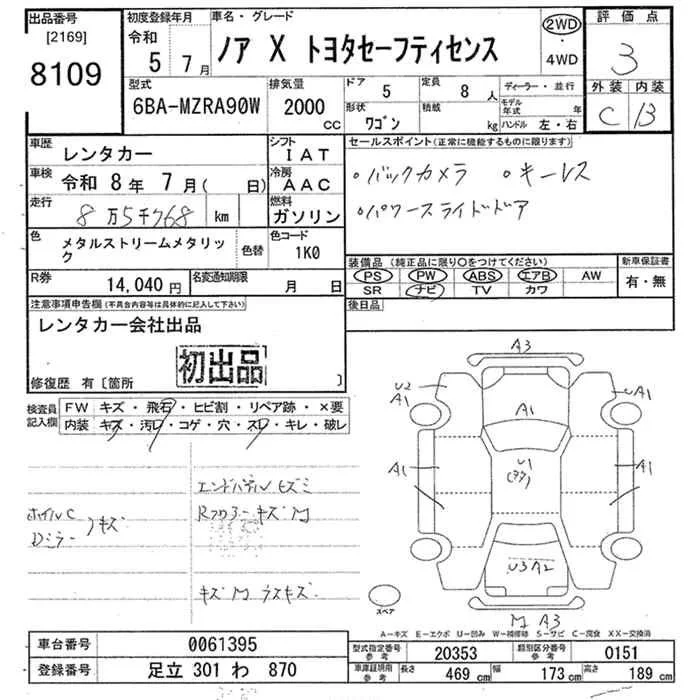 出品番号 初度登録年月 車名・グレード 2WD 評価点
[2169] 令和 ノア X トヨタセーフティセンス ・ 3
8109 5 7月 4WD
型式 排気量 ドア 5 定員 8人 ディーラー・並行 外装 内装
6BA-MZRA90W 2000cc 形状 ワゴン 積載 kg モデル年式 年 C B
ハンドル 左・右
車歴 レンタカー シフト IAT セールスポイント(正常に機能するものに限ります)
車検 令和 8年 7月( 日) 冷房 AAC ・バックカメラ ・キーレス
走行 8万5千768 km 燃料 ガソリン ・パワースライドドア
色 メタルストリームメタリック 色替 色コード 1K0
装備品(純正品に限り○をつけてください) 新車保証書
R券 14,040円 名変通知期限 月 日 PS PW ABS エアB AW 有・無
SR ナビ TV カワ
注意事項申告欄(不具合内容等は具体的に記入して下さい) 後日品
レンタカー会社出品
初出品
修復歴 有〔箇所 〕
検査員記入欄 FW キズ・飛石・ヒビ割・リペア跡・×要
内装 キズ・汚レ・コゲ・穴・スレ・キレ・破レ
A3
U2 A1 UA1
A1
A1 U1 A1
エンドパネルヒズミ
ホイルC キズ
Dミラー
U3 A2
スペア
A3
A-キズ E-エクボ U-凹み W-補修跡 S-サビ C-腐食 XX-交換済
車台番号 0061395 型式指定番号 参考 20353 類別区分番号 参考 0151
登録番号 足立 301 わ 870 車庫証明用 参考 長さ 469cm 幅 173cm 高さ 189cm